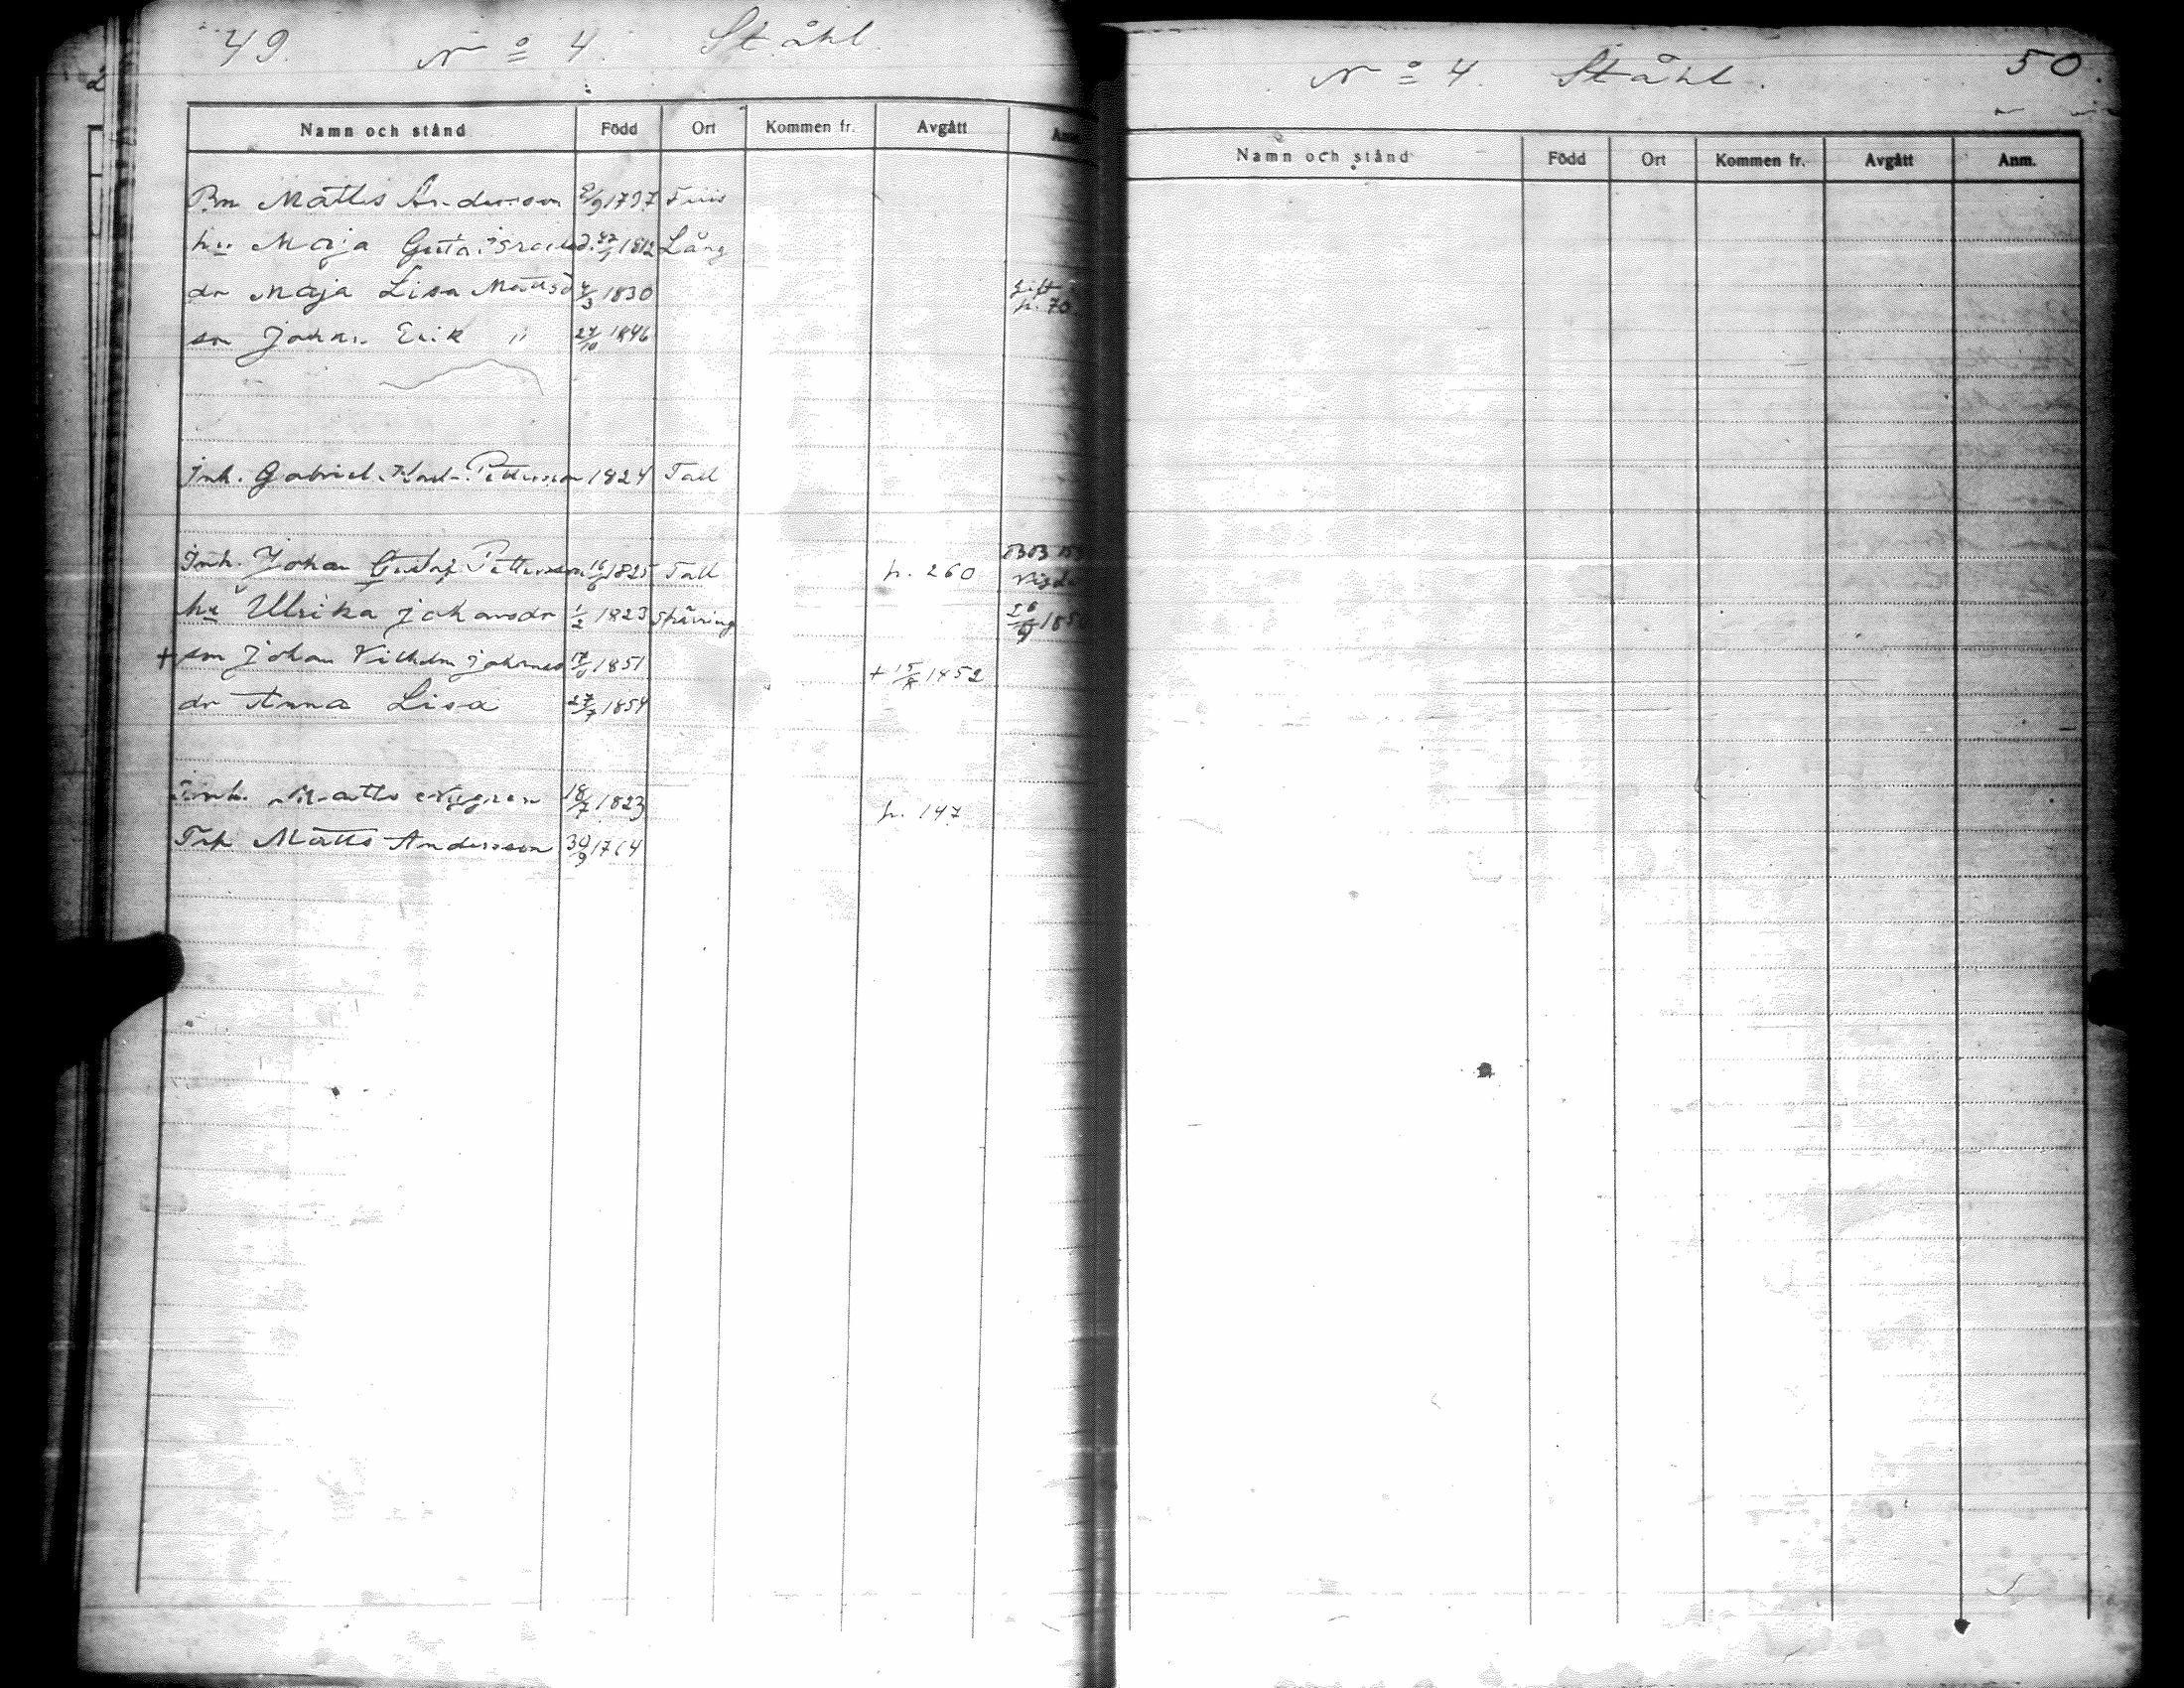 49. No 4. Ståhl.
Namn och stånd Född Ort Kommen fr. Avgått Anm.
Bm Matts Andersson 2/9 1797 Fins
hu Maja Gusta Israelsd. 1812 Lång
dr Maja Lisa Mattsd 4/3 1830 Gift p. 70
sn Johan Erik " 27/10 1846
Inh. Gabriel Karl Pettersson 1824 Tall
Inh. Johan Gustaf Pettersson 16/6 1825 Tall p. 260 Vigda
hu Ulrika Johansdr 1/2 1823 Späring 1850
+ sn Johan Vilhelm Johansso 1851 + 15/8 1852
dr Anna Lisa 27/7 1854
Inh. Matts Nygren 18/7 1823 p. 147
Matts Andersson 30/9 1764
No 4. Ståhl. 50.
Namn och stånd Född Ort Kommen fr. Avgått Anm.